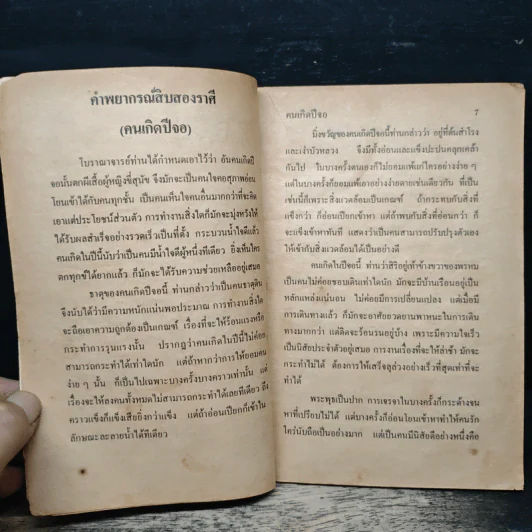 คำพยากรณ์สิบสองราศี
(คนเกิดปีจอ)
โบราณาจารย์ท่านได้กำหนดเอาไว้ว่า อันคนเกิดปี
จอนั้นตกผีเสื้อผู้หญิงขี่สุนัข จึงมักจะเป็นคนใจคอสุภาพอ่อน
โยนเข้าได้กับคนทุกชั้น เป็นคนเห็นใจคนอื่นมากกว่าที่จะคิด
เอาแต่ประโยชน์ส่วนตัว การทำงานสิ่งใดก็มักจะมุ่งหวังให้
ได้รับผลสำเร็จอย่างรวดเร็วเป็นที่ตั้ง กระบวนน้ำใจดีแล้ว
คนเกิดในปีนี้นับว่าเป็นคนมีน้ำใจดีผู้หนึ่งทีเดียว ยิ่งเห็นใคร
ตกทุกข์ได้ยากแล้ว ก็มักจะได้รับความช่วยเหลืออยู่เสมอ
ธาตุของคนเกิดปีจอนี้ ท่านกล่าวว่าเป็นคนธาตุดิน
จึงนับได้ว่ามีความหนักแน่นพอประมาณ การทำงานสิ่งใด
จะถือเอาความถูกต้องเป็นเกณฑ์ เรื่องที่จะให้ร้อนแรงหรือ
กระทำการรุนแรงนั้น ปรากฏว่าคนเกิดในปีนี้ไม่ค่อย
สามารถกระทำได้เท่าใดนัก แต่ถ้าหากว่าการให้ยอมคน
ง่าย ๆ นั้น ก็เป็นไปเฉพาะบางครั้งบางคราวเท่านั้น แต่
เรื่องจะให้ลงคนทั้งหมดไม่สามารถกระทำได้เลยทีเดียว ถึง
คราวแข็งก็แข็งเสียยิ่งกว่าแข็ง แต่ถ้าอ่อนเปียกก็เข้าใน
ลักษณะละลายน้ำได้ทีเดียว
คนเกิดปีจอ 7
มิ่งขวัญของคนเกิดปีจอนี้ท่านกล่าวว่า อยู่ที่ต้นสำโรง
และเง่าบัวหลวง จึงมีทั้งอ่อนและแข็งปะปนคลุกเคล้า
กันไป ในบางครั้งตนเองก็ไม่ยอมแพ้แก่ใครอย่างง่าย ๆ
แต่ในบางครั้งก็ยอมแพ้เอาอย่างง่ายดายเช่นเดียวกัน ที่เป็น
เช่นนี้ก็เพราะสิ่งแวดล้อมเป็นเกณฑ์ ถ้ากระทบกับสิ่งที่
แข็งกว่า ก็อ่อนเปียกเข้าหา แต่ถ้าพบกับสิ่งที่อ่อนกว่า ก็
จะแข็งเข้าหาทันที แสดงว่าเป็นคนสามารถปรับปรุงตัวเอง
ให้เข้ากับสิ่งแวดล้อมได้เป็นอย่างดี
คนเกิดในปีจอนี้ ท่านว่าสิริอยู่เท้าข้างขวาของพรหม
เป็นคนไม่ค่อยชอบเดินเท่าใดนัก มักจะมีบ้านเรือนอยู่เป็น
หลักแหล่งแน่นอน ไม่ค่อยมีการเปลี่ยนแปลง แต่เมื่อมี
การเดินทางแล้ว ก็มักจะอาศัยยวดยานพาหนะในการเดิน
ทางมากกว่า แต่ติดจะร้อนรนอยู่บ้าง เพราะมีความใจเร็ว
เป็นนิสัยประจำตัวอยู่เสมอ การงานเรื่องที่จะให้ล่าช้า มักจะ
กระทำไม่ได้ ต้องการให้เสร็จลุล่วงอย่างเร็วที่สุดเท่าที่จะ
ทำได้
พระพุธเป็นปาก การเจรจาในบางครั้งก็กระด้างจน
หาที่เปรียบไม่ได้ แต่บางครั้งก็อ่อนโยนเข้าหาทำให้คนรัก
ใคร่นับถือเป็นอย่างมาก แต่เป็นคนมีนิสัยดีอย่างหนึ่งคือ